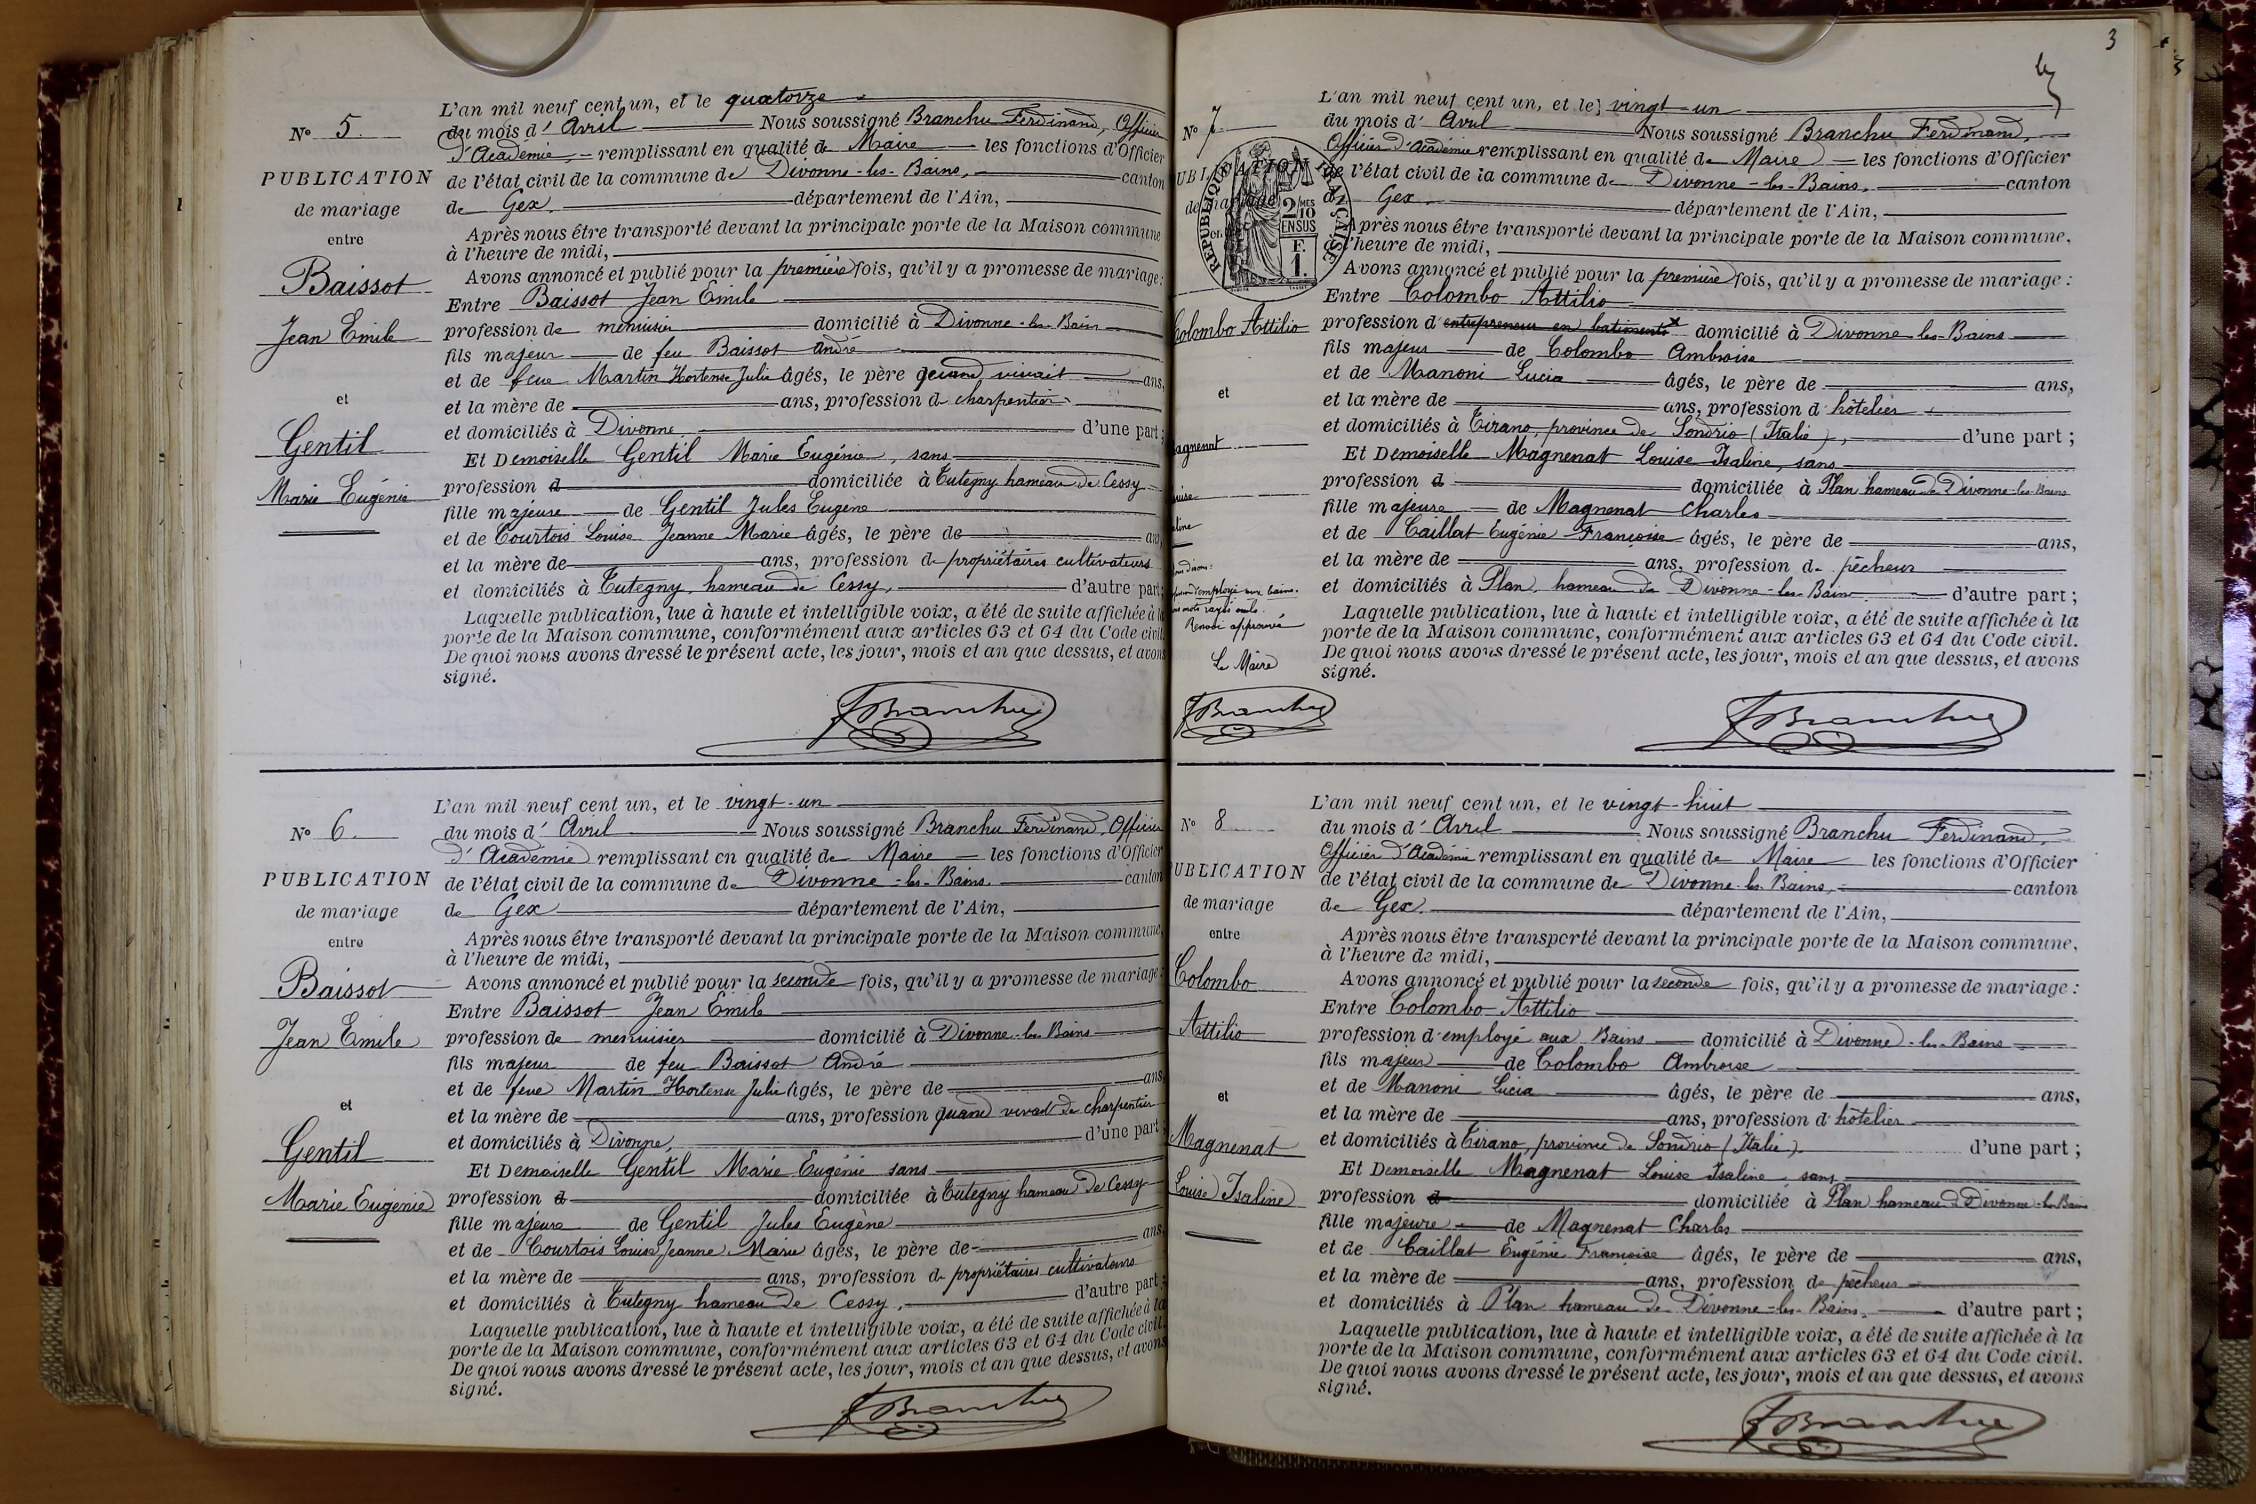 N° 5.
PUBLICATION
de mariage
entre
Baissot
Jean Emile
et
Gentil
Marie Eugénie
L'an mil neuf cent un, et le quatorze
du mois d'Avril Nous soussigné Branchu Ferdinand, Officier
d'Académie, remplissant en qualité de Maire les fonctions d'Officier
de l'état civil de la commune de Divonne-les-Bains, canton
de Gex. département de l'Ain,
Après nous être transporté devant la principale porte de la Maison commune
à l'heure de midi,
Avons annoncé et publié pour la première fois, qu'il y a promesse de mariage :
Entre Baissot Jean Emile
profession de menuisier domicilié à Divonne-les-Bains
fils majeur de feu Baissot André
et de feue Martin Hortense Julie âgés, le père quand vivait ans,
et la mère de ans, profession de charpentier
et domiciliés à Divonne d'une part ;
Et Demoiselle Gentil Marie Eugénie, sans
profession d domiciliée à Tutegny hameau de Cessy
fille majeure de Gentil Jules Eugène
et de Courtois Louise Jeanne Marie âgés, le père de ans,
et la mère de ans, profession de propriétaires cultivateurs
et domiciliés à Tutegny, hameau de Cessy, d'autre part ;
Laquelle publication, lue à haute et intelligible voix, a été de suite affichée à la
porte de la Maison commune, conformément aux articles 63 et 64 du Code civil.
De quoi nous avons dressé le présent acte, les jour, mois et an que dessus, et avons
signé.
FBranchu
N° 6.
PUBLICATION
de mariage
entre
Baissot
Jean Emile
et
Gentil
Marie Eugénie
L'an mil neuf cent un, et le vingt-un
du mois d'Avril Nous soussigné Branchu Ferdinand, Officier
d'Académie remplissant en qualité de Maire les fonctions d'Officier
de l'état civil de la commune de Divonne-les-Bains. canton
de Gex département de l'Ain,
Après nous être transporté devant la principale porte de la Maison commune,
à l'heure de midi,
Avons annoncé et publié pour la seconde fois, qu'il y a promesse de mariage :
Entre Baissot Jean Emile
profession de menuisier domicilié à Divonne-les-Bains
fils majeur de feu Baissot André
et de feue Martin Hortense Julie âgés, le père de ans,
et la mère de ans, profession quand vivait de charpentier
et domiciliés à Divonne, d'une part
Et Demoiselle Gentil Marie Eugénie sans
profession d domiciliée à Tutegny hameau de Cessy
fille majeure de Gentil Jules Eugène
et de Courtois Louise Jeanne Marie âgés, le père de ans,
et la mère de ans, profession de propriétaires cultivateurs
et domiciliés à Tutegny hameau de Cessy. d'autre part ;
Laquelle publication, lue à haute et intelligible voix, a été de suite affichée à la
porte de la Maison commune, conformément aux articles 63 et 64 du Code civil.
De quoi nous avons dressé le présent acte, les jour, mois et an que dessus, et avons
signé.
FBranchu
3
N° 7
UBLICATION
de mariage
RÉPUBLIQUE FRANÇAISE
2/10 MES
EN SUS
F.
1.
Colombo Attilio
et
agnenat
uise
aline
employé aux bains.
mots rayés nuls.
Renvoi approuvé
Le Maire
FBranchu
L'an mil neuf cent un, et le vingt-un
du mois d'Avril Nous soussigné Branchu Ferdinand,
Officier d'Académie remplissant en qualité de Maire les fonctions d'Officier
de l'état civil de la commune de Divonne-les-Bains. canton
de Gex. département de l'Ain,
Après nous être transporté devant la principale porte de la Maison commune,
à l'heure de midi,
Avons annoncé et publié pour la première fois, qu'il y a promesse de mariage :
Entre Colombo Attilio
profession d'entrepreneur en batiments domicilié à Divonne-les-Bains
fils majeur de Colombo Ambroise
et de Manoni Lucia âgés, le père de ans,
et la mère de ans, profession d'hôtelier
et domiciliés à Tirano, province de Sondrio (Italie), d'une part ;
Et Demoiselle Magnenat Louise Isaline, sans
profession d domiciliée à Plan hameau de Divonne-les-Bains
fille majeure de Magnenat Charles
et de Caillat Eugénie Françoise âgés, le père de ans,
et la mère de ans, profession de pêcheur
et domiciliés à Plan, hameau de Divonne-les-Bains. d'autre part ;
Laquelle publication, lue à haute et intelligible voix, a été de suite affichée à la
porte de la Maison commune, conformément aux articles 63 et 64 du Code civil.
De quoi nous avons dressé le présent acte, les jour, mois et an que dessus, et avons
signé.
FBranchu
N° 8
UBLICATION
de mariage
entre
Colombo
Attilio
et
Magnenat
Louise Isaline
L'an mil neuf cent un, et le vingt-huit
du mois d'Avril Nous soussigné Branchu Ferdinand,
Officier d'Académie remplissant en qualité de Maire les fonctions d'Officier
de l'état civil de la commune de Divonne-les-Bains, canton
de Gex. département de l'Ain,
Après nous être transporté devant la principale porte de la Maison commune,
à l'heure de midi,
Avons annoncé et publié pour la seconde fois, qu'il y a promesse de mariage :
Entre Colombo Attilio
profession d'employé aux Bains domicilié à Divonne-les-Bains
fils majeur de Colombo Ambroise
et de Manoni Lucia âgés, le père de ans,
et la mère de ans, profession d'hôtelier
et domiciliés à Tirano, province de Sondrio (Italie). d'une part ;
Et Demoiselle Magnenat Louise Isaline, sans
profession d domiciliée à Plan hameau de Divonne-les-Bains
fille majeure de Magnenat Charles
et de Caillat Eugénie Françoise âgés, le père de ans,
et la mère de ans, profession de pêcheur
et domiciliés à Plan hameau de Divonne-les-Bains. d'autre part ;
Laquelle publication, lue à haute et intelligible voix, a été de suite affichée à la
porte de la Maison commune, conformément aux articles 63 et 64 du Code civil.
De quoi nous avons dressé le présent acte, les jour, mois et an que dessus, et avons
signé.
FBranchu